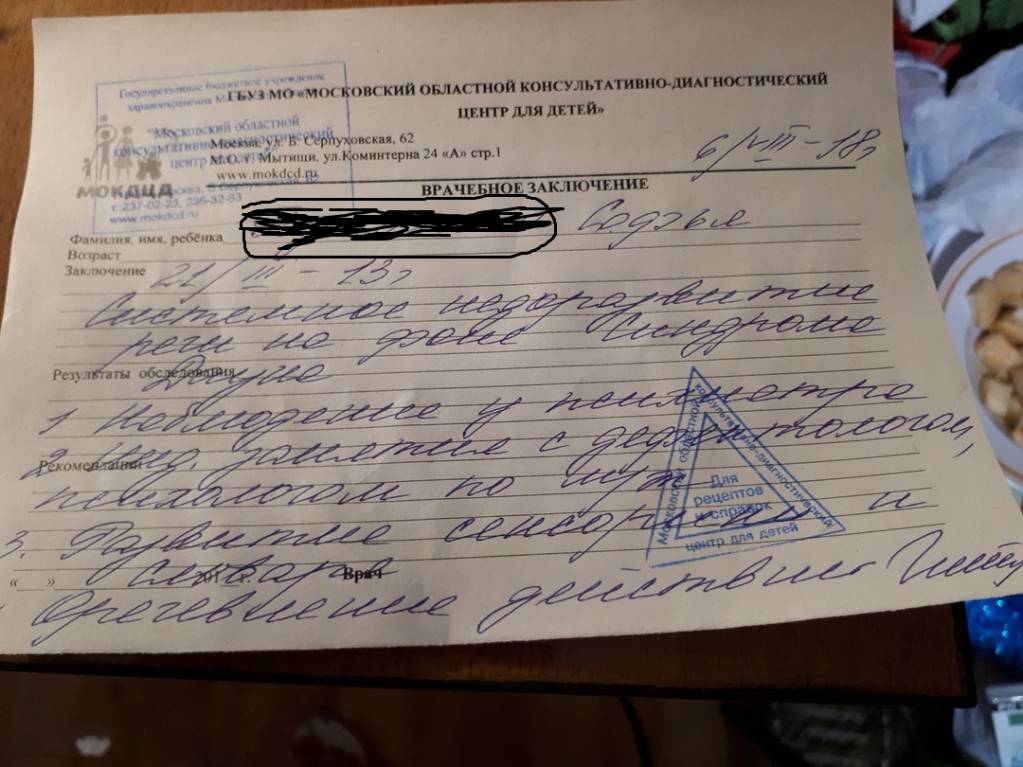 Государственное бюджетное учреждение
здравоохранения
"Московский областной
консультативно-диагностический
центр для детей"
Москва, Б. Серпуховская, 62
т.:237-02-23, 236-32-63
www.mokdcd.ru
МОКДЦД
ГБУЗ МО «МОСКОВСКИЙ ОБЛАСТНОЙ КОНСУЛЬТАТИВНО-ДИАГНОСТИЧЕСКИЙ
ЦЕНТР ДЛЯ ДЕТЕЙ»
Москва, ул. Б. Серпуховская, 62
М.О., г. Мытищи, ул.Коминтерна 24 «А» стр.1
www.mokdcd.ru
6/VIII-18г
ВРАЧЕБНОЕ ЗАКЛЮЧЕНИЕ
Фамилия, имя, ребёнка
Возраст
Заключение 21/III - 13г
Системное недоразвитие
речи на фоне синдрома
Результаты обследования Дауна
1. Наблюдение у психиатра
2. Инд. занятия с дефектологом,
Рекомендации
психологом по м/ж
3. Развитие сенсорики и
« » 201 г. словаря Врач
Оречевление действий
Московский областной консультативно-диагностический центр для детей
Для
рецептов
и справок